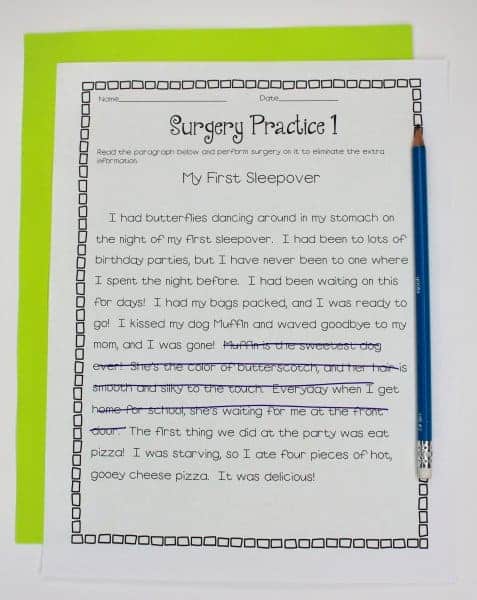 Name Date
Surgery Practice 1
Read the paragraph below and perform surgery on it to eliminate the extra
information.
My First Sleepover
I had butterflies dancing around in my stomach on
the night of my first sleepover. I had been to lots of
birthday parties, but I have never been to one where
I spent the night before. I had been waiting on this
for days! I had my bags packed, and I was ready to
go! I kissed my dog Muffin and waved goodbye to my
mom, and I was gone! Muffin is the sweetest dog
ever! She's the color of butterscotch, and her hair is
smooth and silky to the touch. Everyday when I get
home for school, she's waiting for me at the front
door. The first thing we did at the party was eat
pizza! I was starving, so I ate four pieces of hot,
gooey cheese pizza. It was delicious!